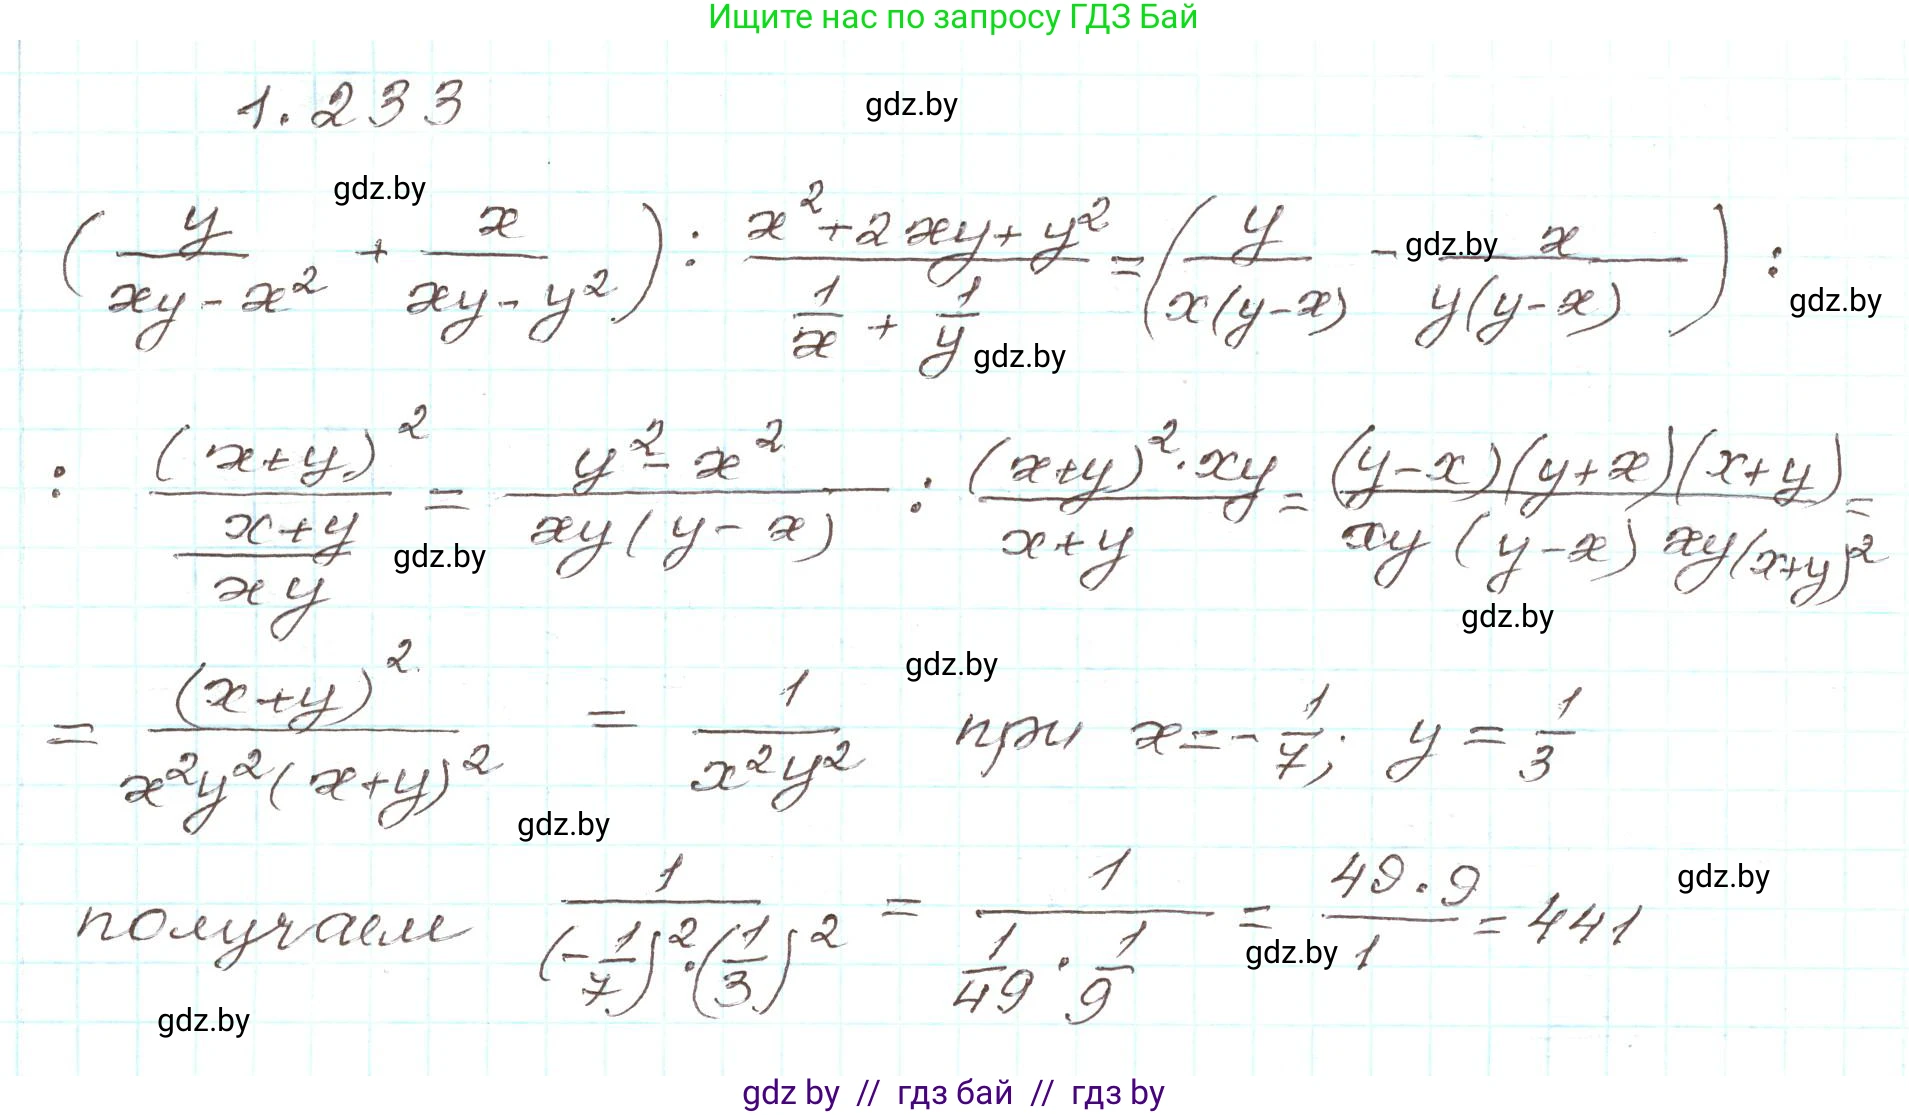 Ищите нас по запросу ГДЗ Бай
1.233
gdz.by
gdz.by
(y/(xy-x²) + x/(xy-y²)) : (x²+2xy+y²)/(1/x + 1/y) = (y/(x(y-x)) - x/(y(y-x))) :
gdz.by
gdz.by
gdz.by
: (x+y)²/((x+y)/(xy)) = (y²-x²)/(xy(y-x)) : ((x+y)²·xy)/(x+y) = ((y-x)(y+x)(x+y))/(xy(y-x)xy(x+y)²) =
gdz.by
gdz.by
gdz.by
= (x+y)²/(x²y²(x+y)²) = 1/(x²y²) при x=-1/7; y=1/3
gdz.by
gdz.by
получаем 1/((-1/7)²·(1/3)²) = 1/(1/49·1/9) = (49·9)/1 = 441
gdz.by
gdz.by
gdz by // гдз бай // гдз by